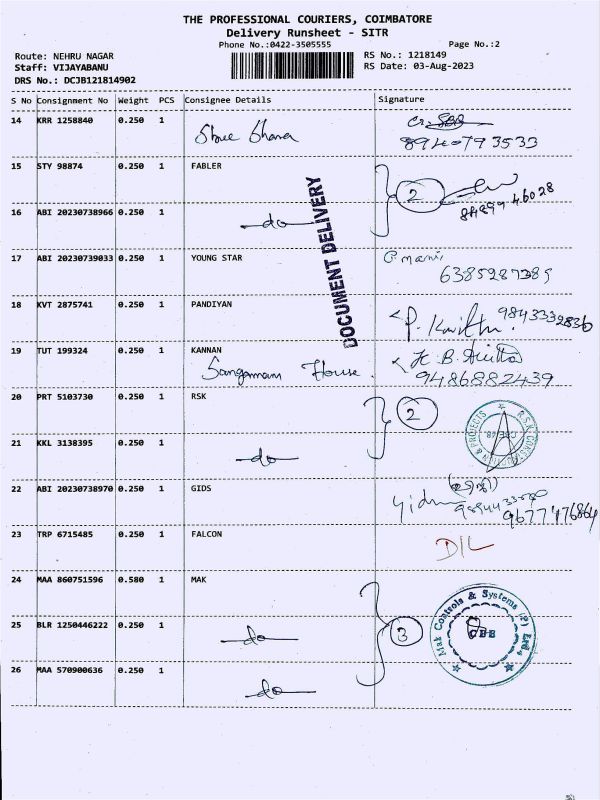 THE PROFESSIONAL COURIERS, COIMBATORE
Delivery Runsheet - SITR
Phone No.:0422-3505555 Page No.:2
Route: NEHRU NAGAR RS No.: 1218149
Staff: VIJAYABANU RS Date: 03-Aug-2023
DRS No.: DCJB121814902
S No Consignment No Weight PCS Consignee Details Signature
14 KRR 1258840 0.250 1
8940793533
15 STY 98874 0.250 1 FABLER
2
16 ABI 20230738966 0.250 1 do
DOCUMENT DELIVERY
17 ABI 20230739033 0.250 1 YOUNG STAR
6385287385
18 KVT 2875741 0.250 1 PANDIYAN
9843332836
19 TUT 199324 0.250 1 KANNAN
Sangamam House
9486882439
20 PRT 5103730 0.250 1 RSK
2
R.S.K CONSTRUCTION & PROJECTS
21 KKL 3138395 0.250 1 do
22 ABI 20230738970 0.250 1 GIDS
9677476864
23 TRP 6715485 0.250 1 FALCON
D/L
24 MAA 860751596 0.580 1 MAK
Mak Controls & Systems (P) Ltd
CBE
25 BLR 1250446222 0.250 1 do
3
26 MAA 570900636 0.250 1 do